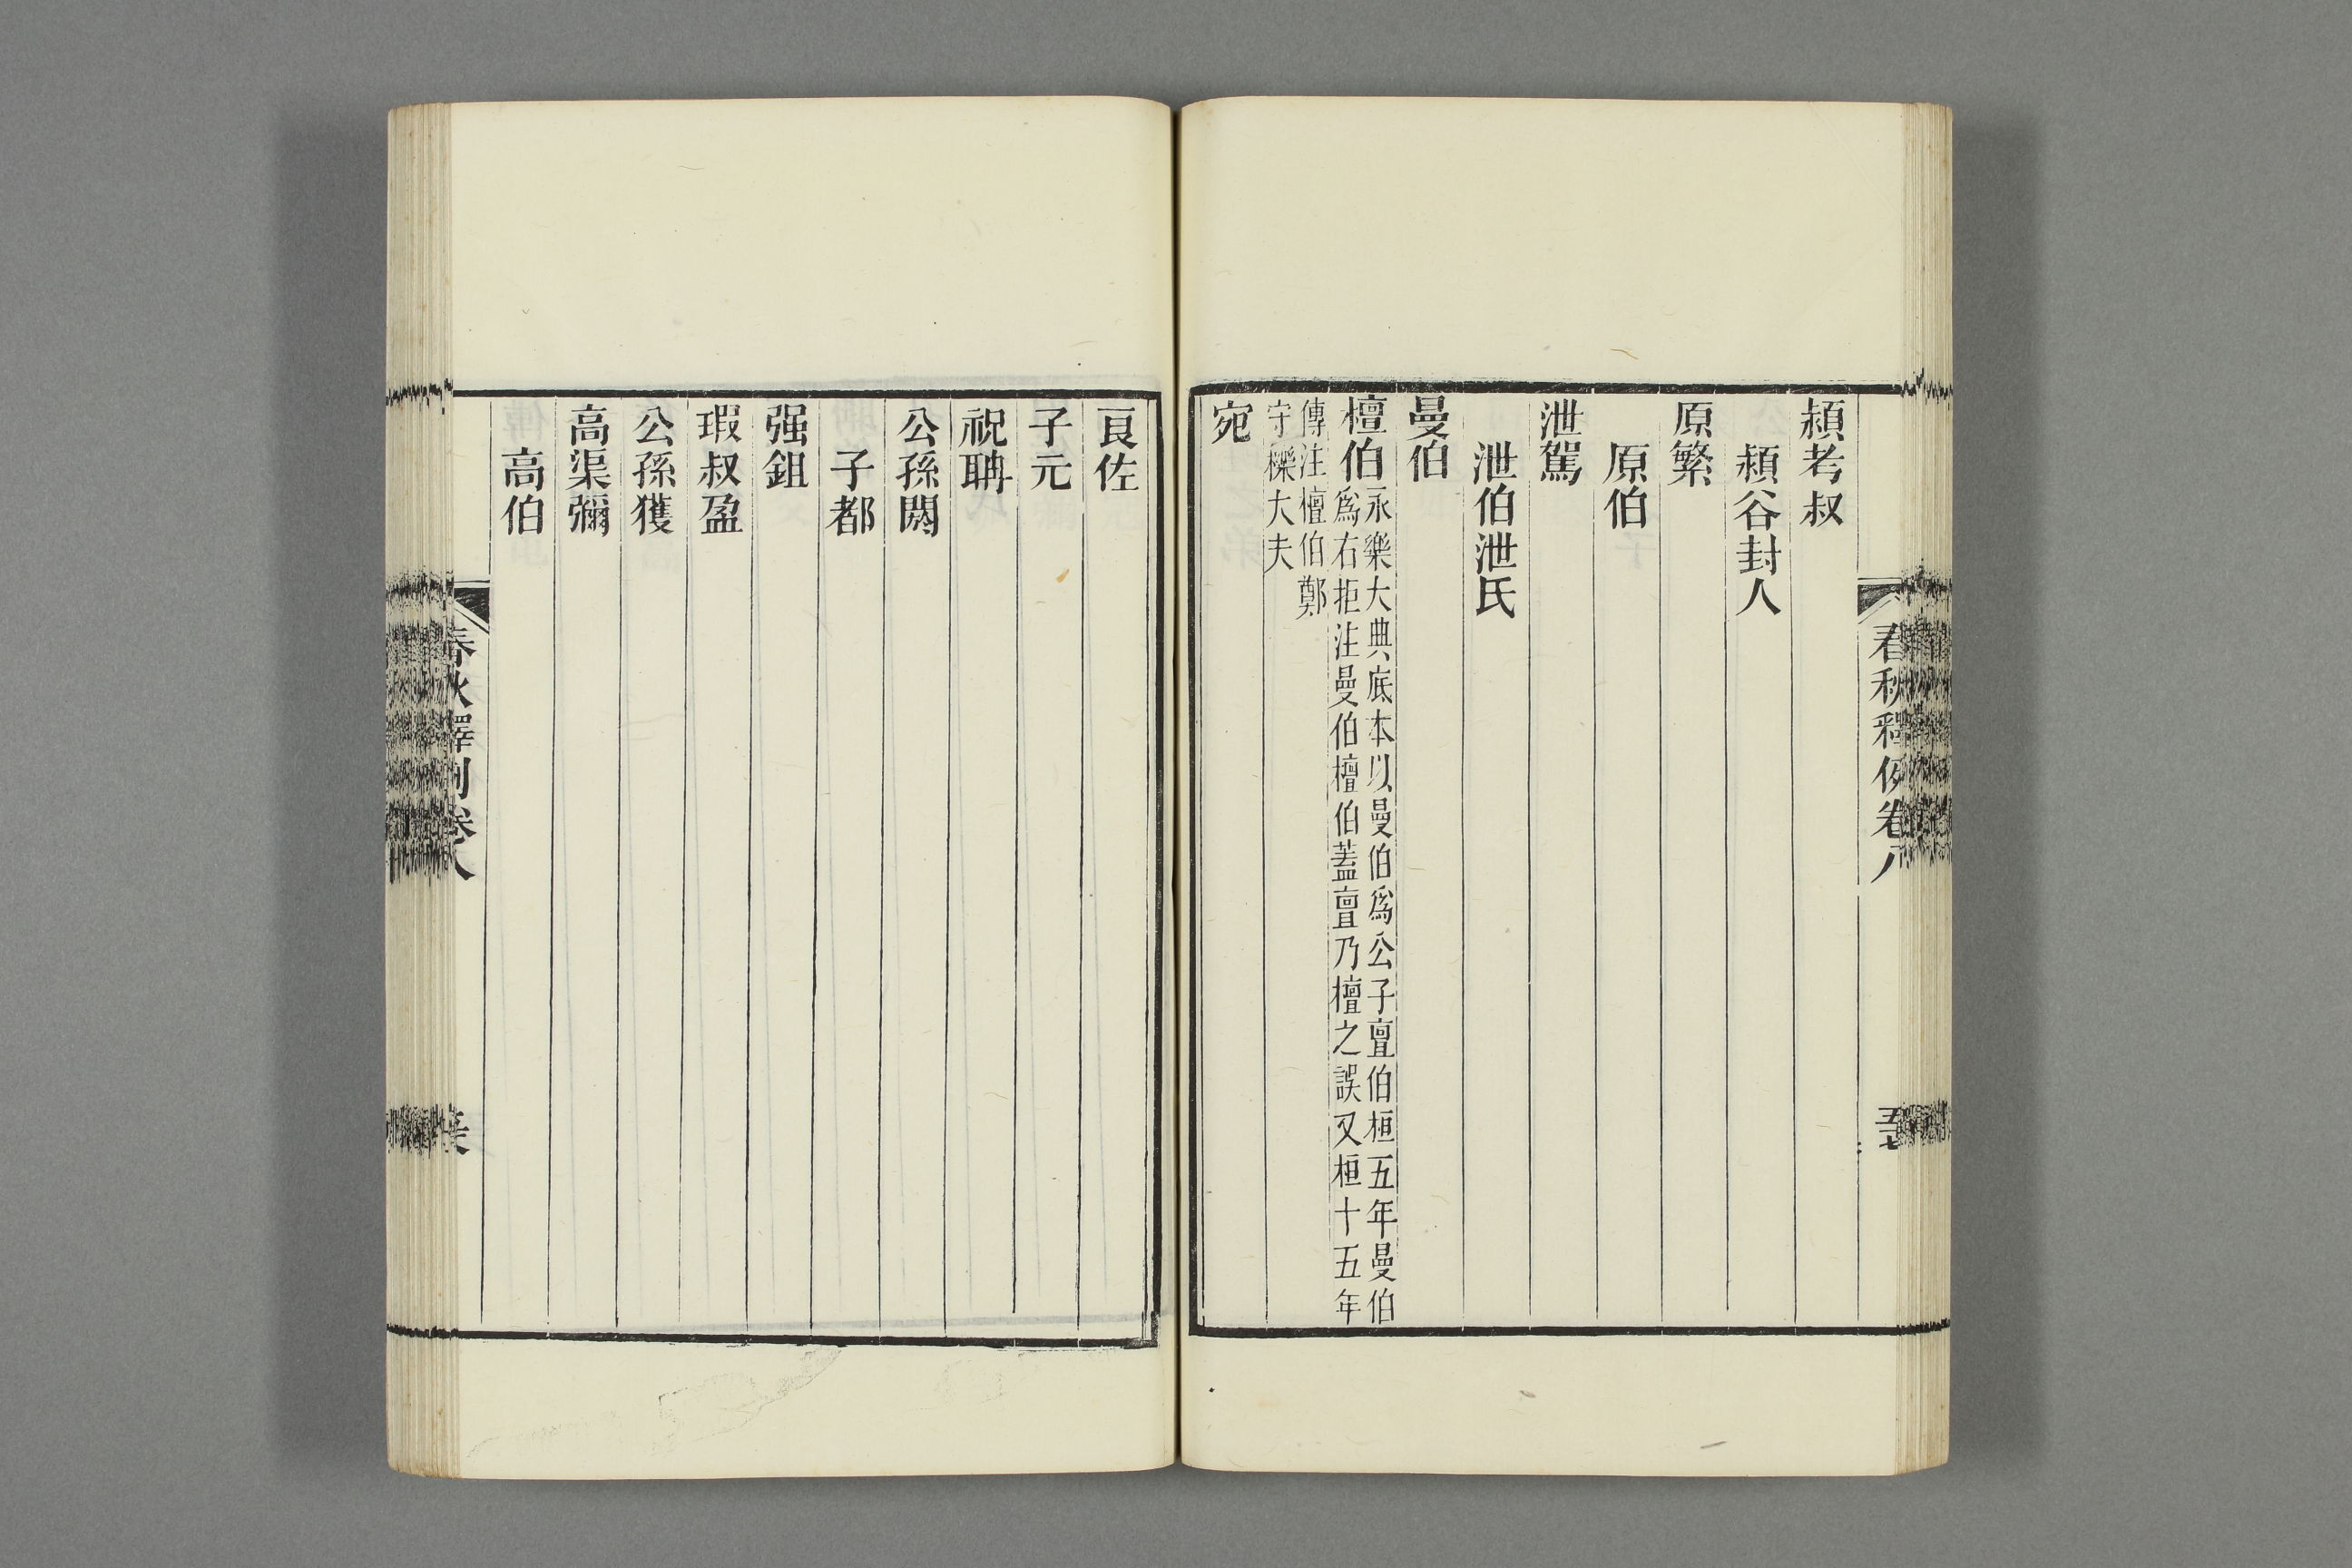 潁考叔
潁谷封人
原繁
原伯
泄駕
泄伯泄氏
曼伯
檀伯永樂大典底本以曼伯爲公子亶伯桓五年曼伯
爲右拒注曼伯檀伯蓋亶乃檀之誤又桓十五年
傳注檀伯鄭
守櫟大夫
宛
良佐
子元
祝聃
公孫閼
子都
强鉏
瑕叔盈
公孫獲
高渠彌
高伯
春秋釋例卷八
春秋釋例卷八